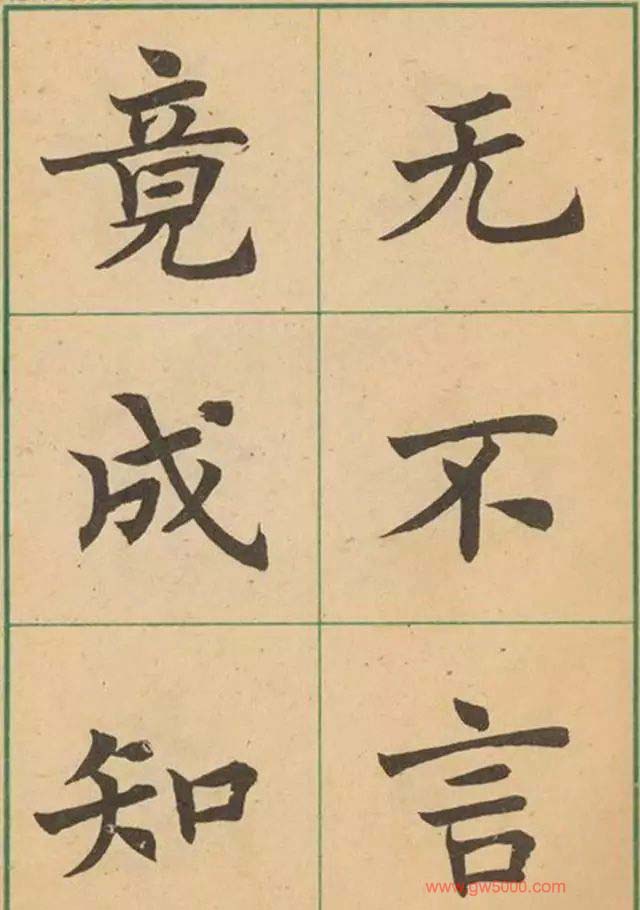 无不言
竟成知
www.gw5000.com